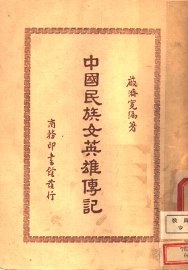 嚴濟寬編著
中國民族女英雄傳記
商務印書館發行